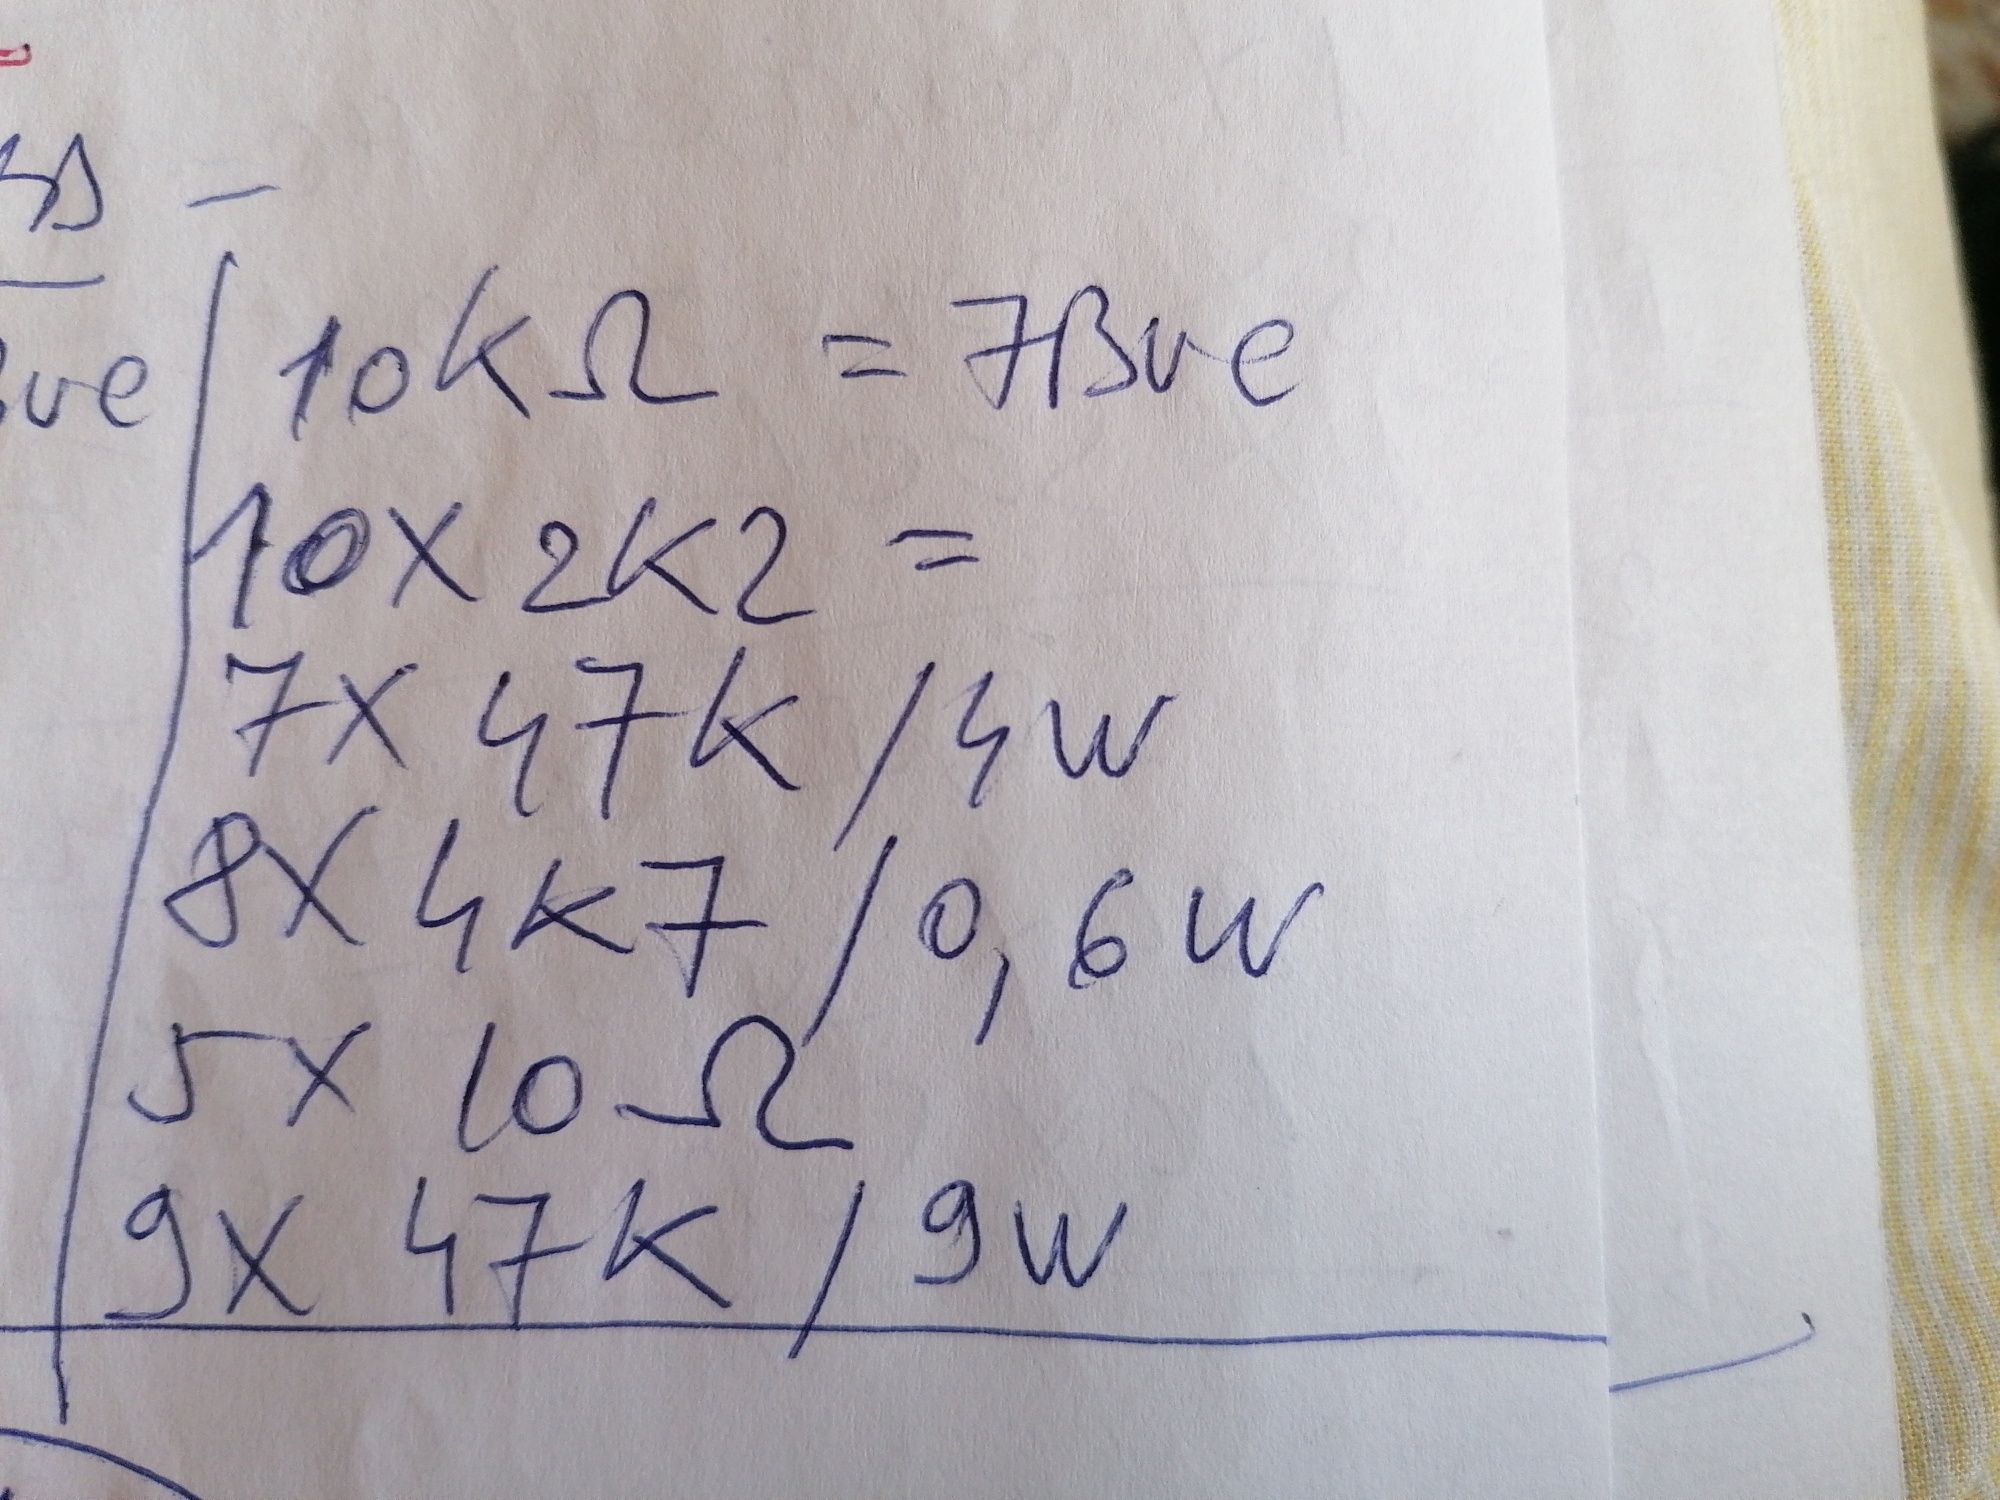 10KΩ = 7Bve
10X 2K2 =
7X 47K / 4W
8X 4K7 / 0,6W
5X 10Ω
9X 47K / 9W